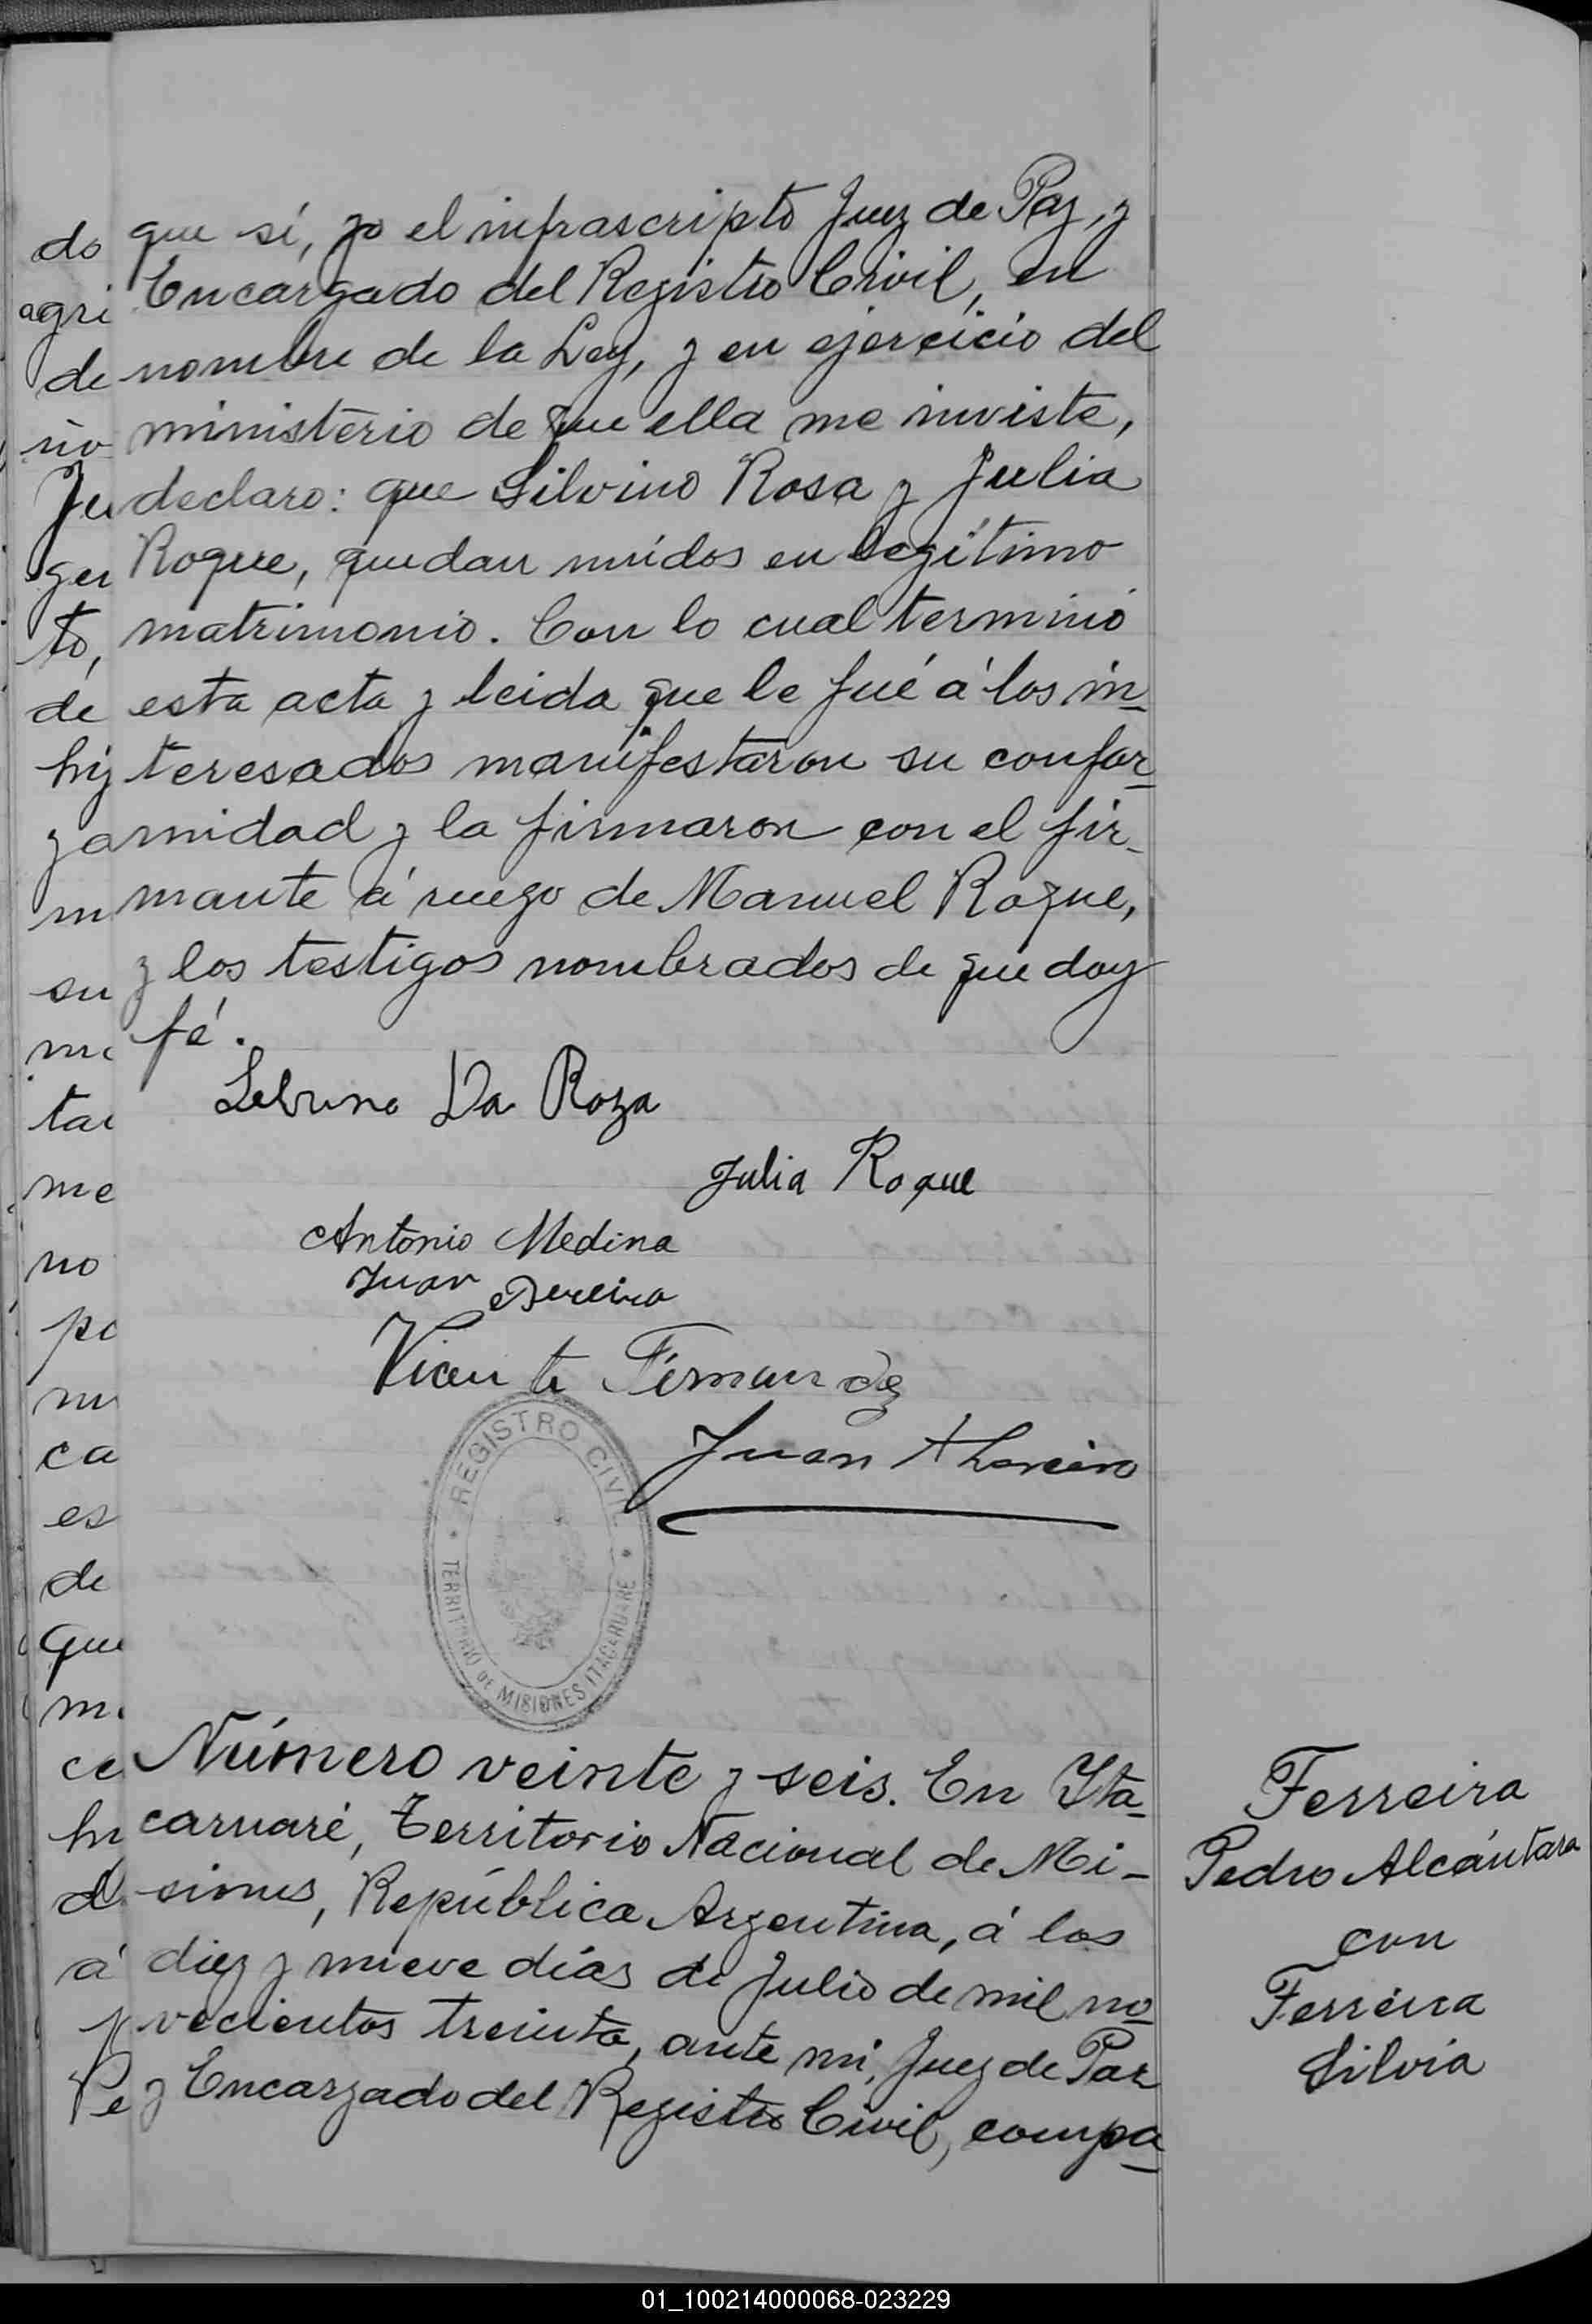 que sí, yo el infrascripto Juez de Paz, y
Encargado del Registro Civil, en
nombre de la Ley, y en ejercicio del
ministerio de que ella me inviste,
declaro: que Silvino Rosa y Julia
Roque, quedan unidos en legítimo
matrimonio. Con lo cual terminó
esta acta y leida que le fué á los in-
teresados manifestaron su confor-
midad y la firmaron con el fir-
mante á ruego de Manuel Roque,
y los testigos nombrados de que doy
fé.
Da Roza
Julia Roque
Antonio Medina
Juan Pereira
Vicente Fernandez
Juan
REGISTRO CIVIL
TERRITORIO DE MISIONES ITACARUARE
Número veinte y seis. En Ita-
caruaré, Territorio Nacional de Mi-
siones, República Argentina, á los
diez y nueve días de Julio de mil no-
vecientos treinta, ante mi, Juez de Paz
y Encargado del Registro Civil, compa-
Ferreira
Pedro Alcántara
con
Ferreira
Silvia
do
agri
de
rio
Ju
gen
to,
de
hij
ya
m
su
me
tar
me
no
po
nu
ca
es
de
que
m
ce
hi
d
á
p
Pe
01_100214000068-023229